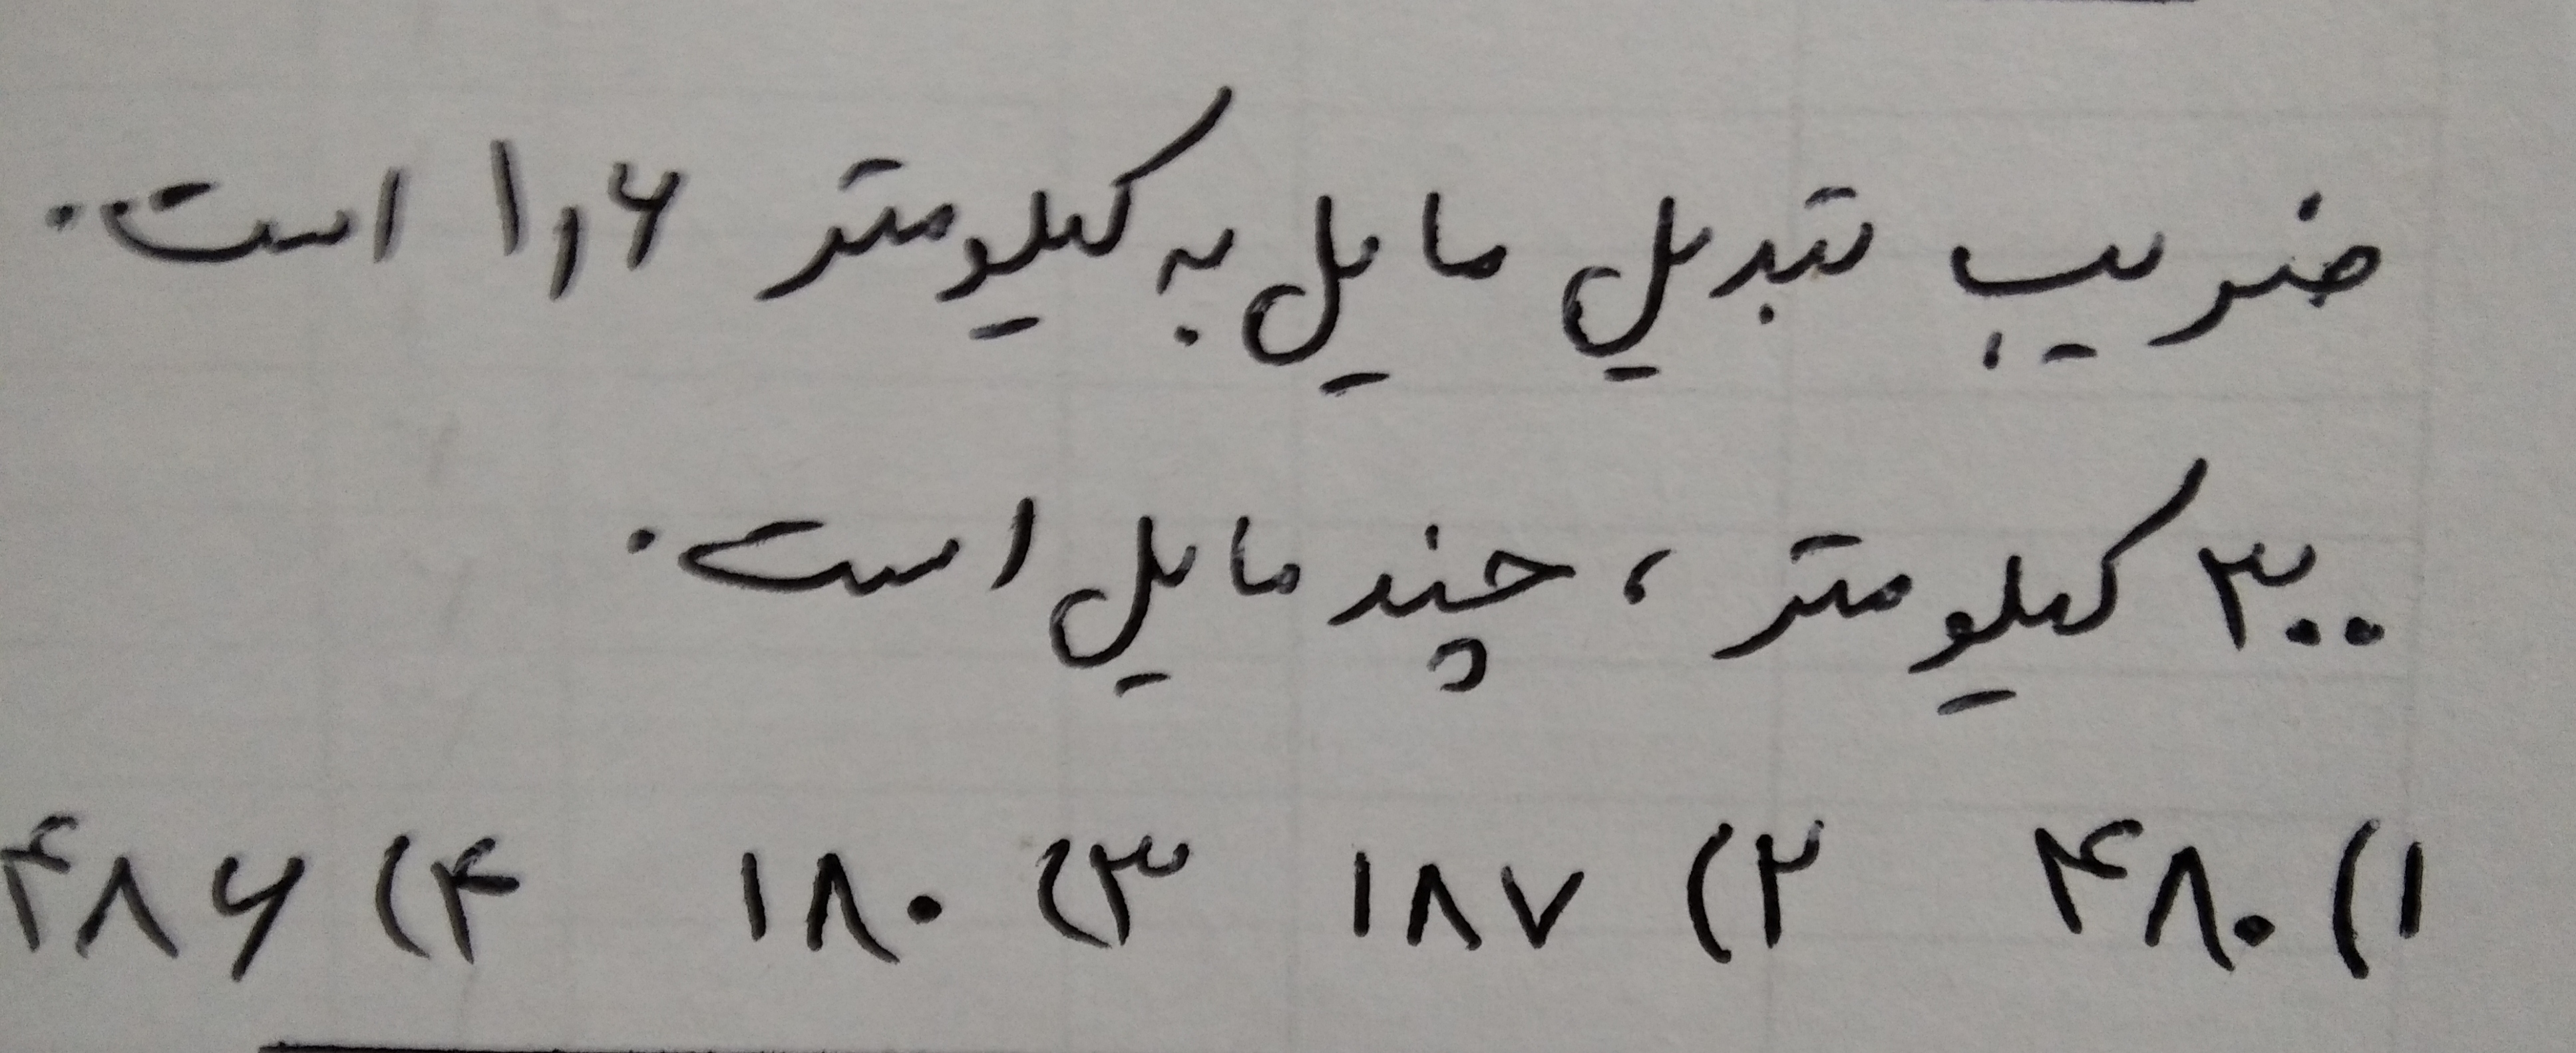 ضریب تبدیل مایل به کیلومتر ۱٫۶ است.
۳۰۰ کیلومتر، چند مایل است.
۱) ۴۸۰ ۲) ۱۸۷ ۳) ۱۸۰ ۴) ۴۸۶